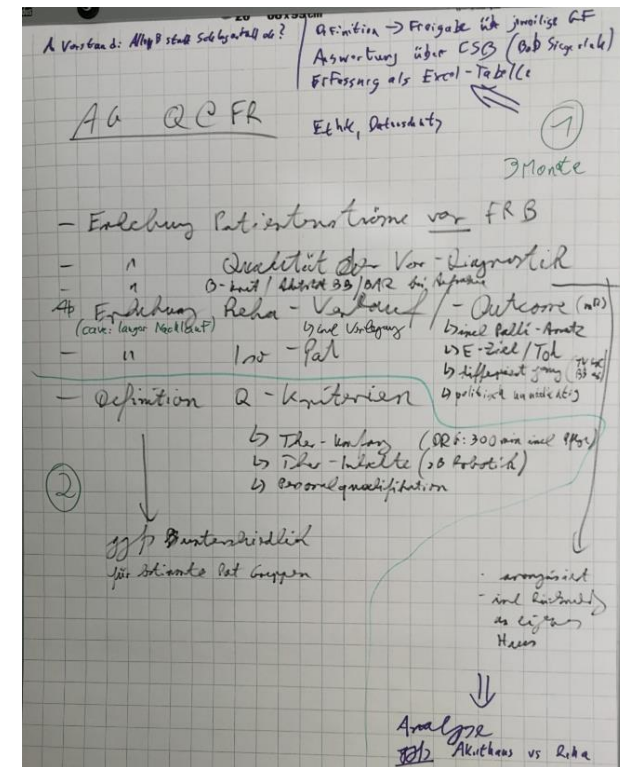 ∧ Vorstand: Alles B statt
Definition → Freigabe üb jeweilige GF
Auswertung über CSB
Erfassung als Excel-Tabelle
AG Q@FR
Ethik, Datenschutz
1
3 Monate
- Erhebung Patientenströme vor FRB
- " Qualität der Vor-Diagnostik
- " B-Keit / BB/BAR bei Aufnahme
Erhebung Reha-Verlauf / - Outcome
(cave: langer Nachlauf) ↳ incl Verlegung ↳ incl Palli-Ansatz
- " Iso-Pat ↳ E-Ziel / Tod
↳ politisch unwichtig
- Definition Q-Kriterien
↳ Ther-Umfang (DRV: 300 min incl Pflege)
↳ Ther-Inhalte (zB Robotik)
↳ Personalqualifikation
2
ggf unterschiedlich
für bestimmte Pat Gruppen
- anonymisiert
- incl
an eigenes
Haus
Analyse
Akuthaus vs Reha